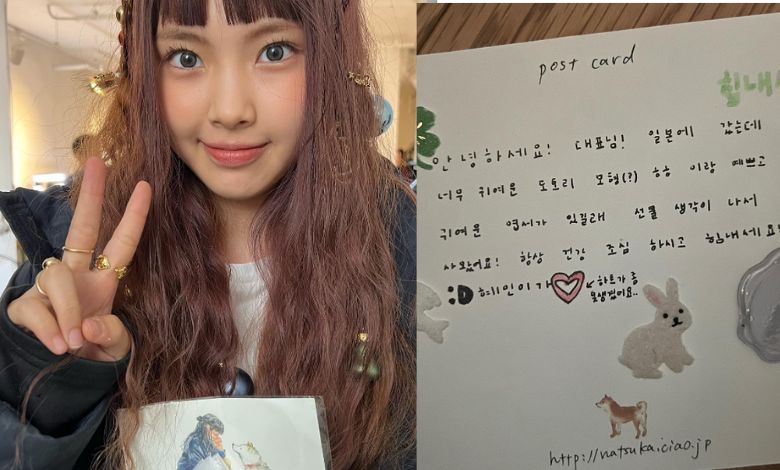 post card
힘내세
안녕하세요! 대표님! 일본에 갔는데
너무 귀여운 도토리 모형(?) ㅎㅎ 이랑 예쁘고
귀여운 엽서가 있길래 선물 생각이 나서
사왔어요! 항상 건강 조심 하시고 힘내세요!
:D 혜인이가 ♡ ← 하트가 좀
못생겼어요..
http://natsukaiciao.jp